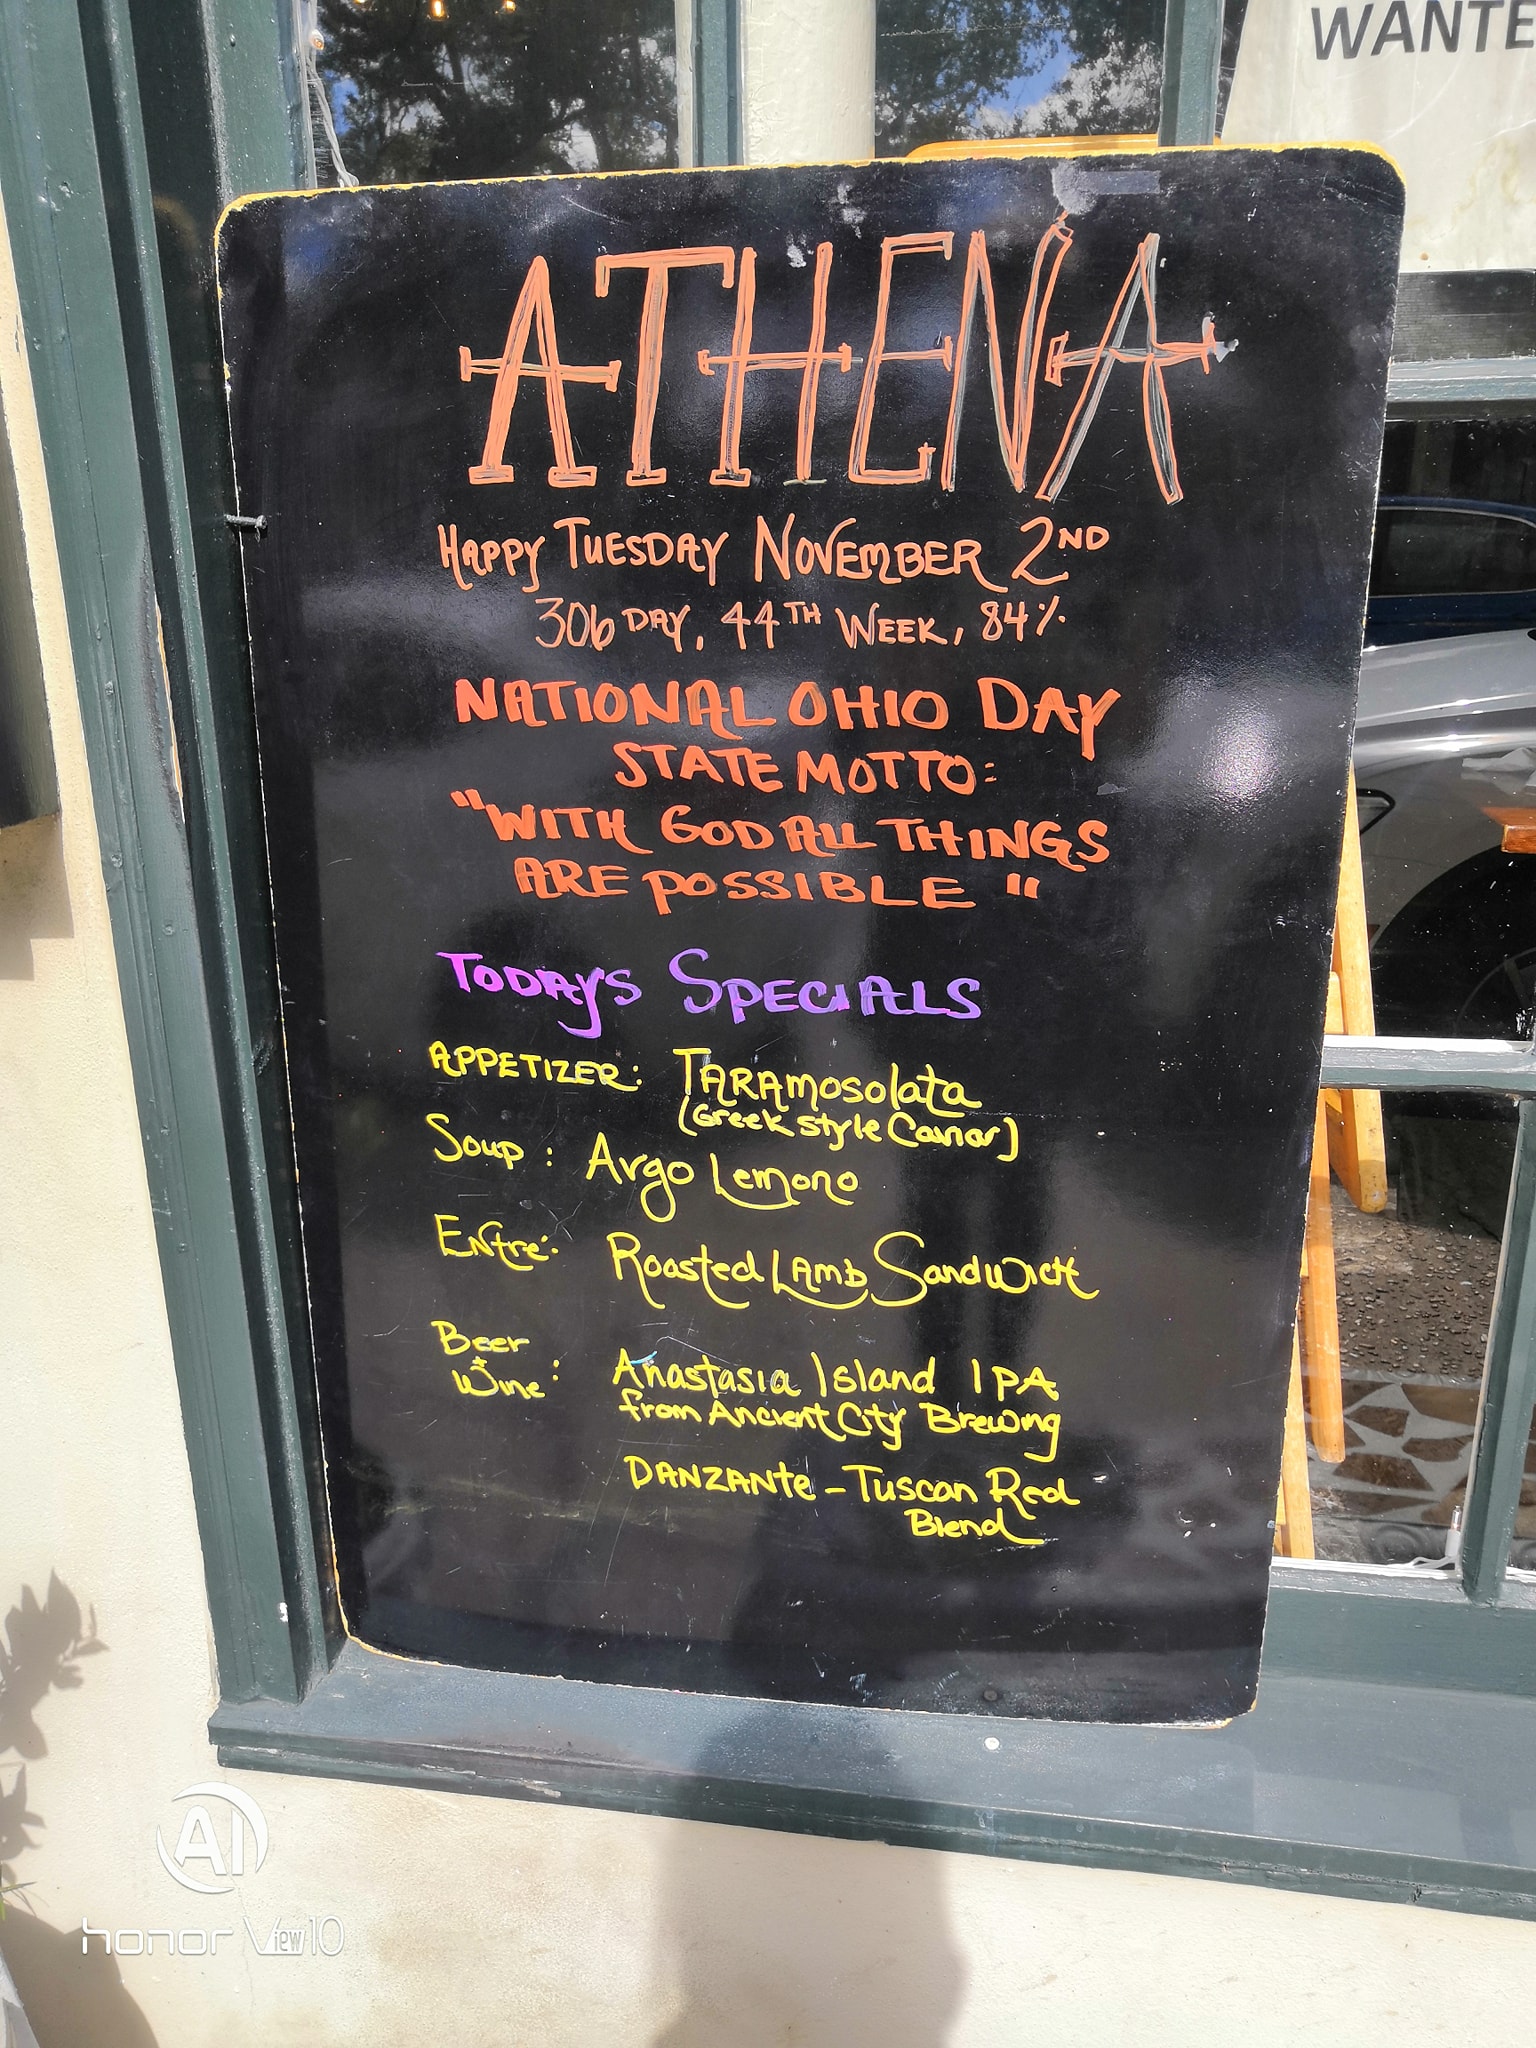 WANTE
ATHENA
HAPPY TUESDAY NOVEMBER 2ND
306 DAY, 44TH WEEK, 84%
NATIONAL OHIO DAY
STATE MOTTO:
"WITH GOD ALL THINGS
ARE POSSIBLE"
TODAYS SPECIALS
APPETIZER: TARAMOSOLATA
(Greek style Caviar)
Soup: Argo Lemono
Entre: Roasted LAMB Sandwich
Beer
& Wine: Anastasia Island IPA
from Ancient City Brewing
DANZANTE - Tuscan Red
Blend
AI
honor View10